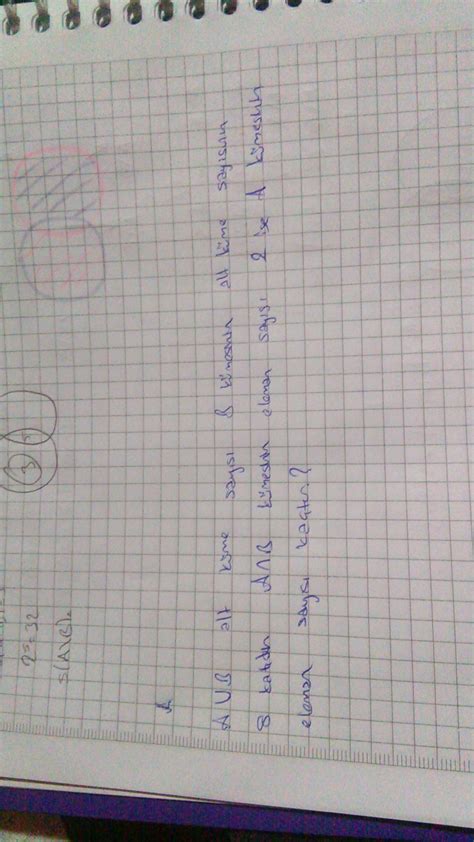 2⁵=32
S(A\B)=
3
A
A∪B alt küme sayısı B kümesinin alt küme sayısının
8 katıdır A∩B kümesinin eleman sayısı 2 ise A kümesinin
eleman sayısı kaçtır?